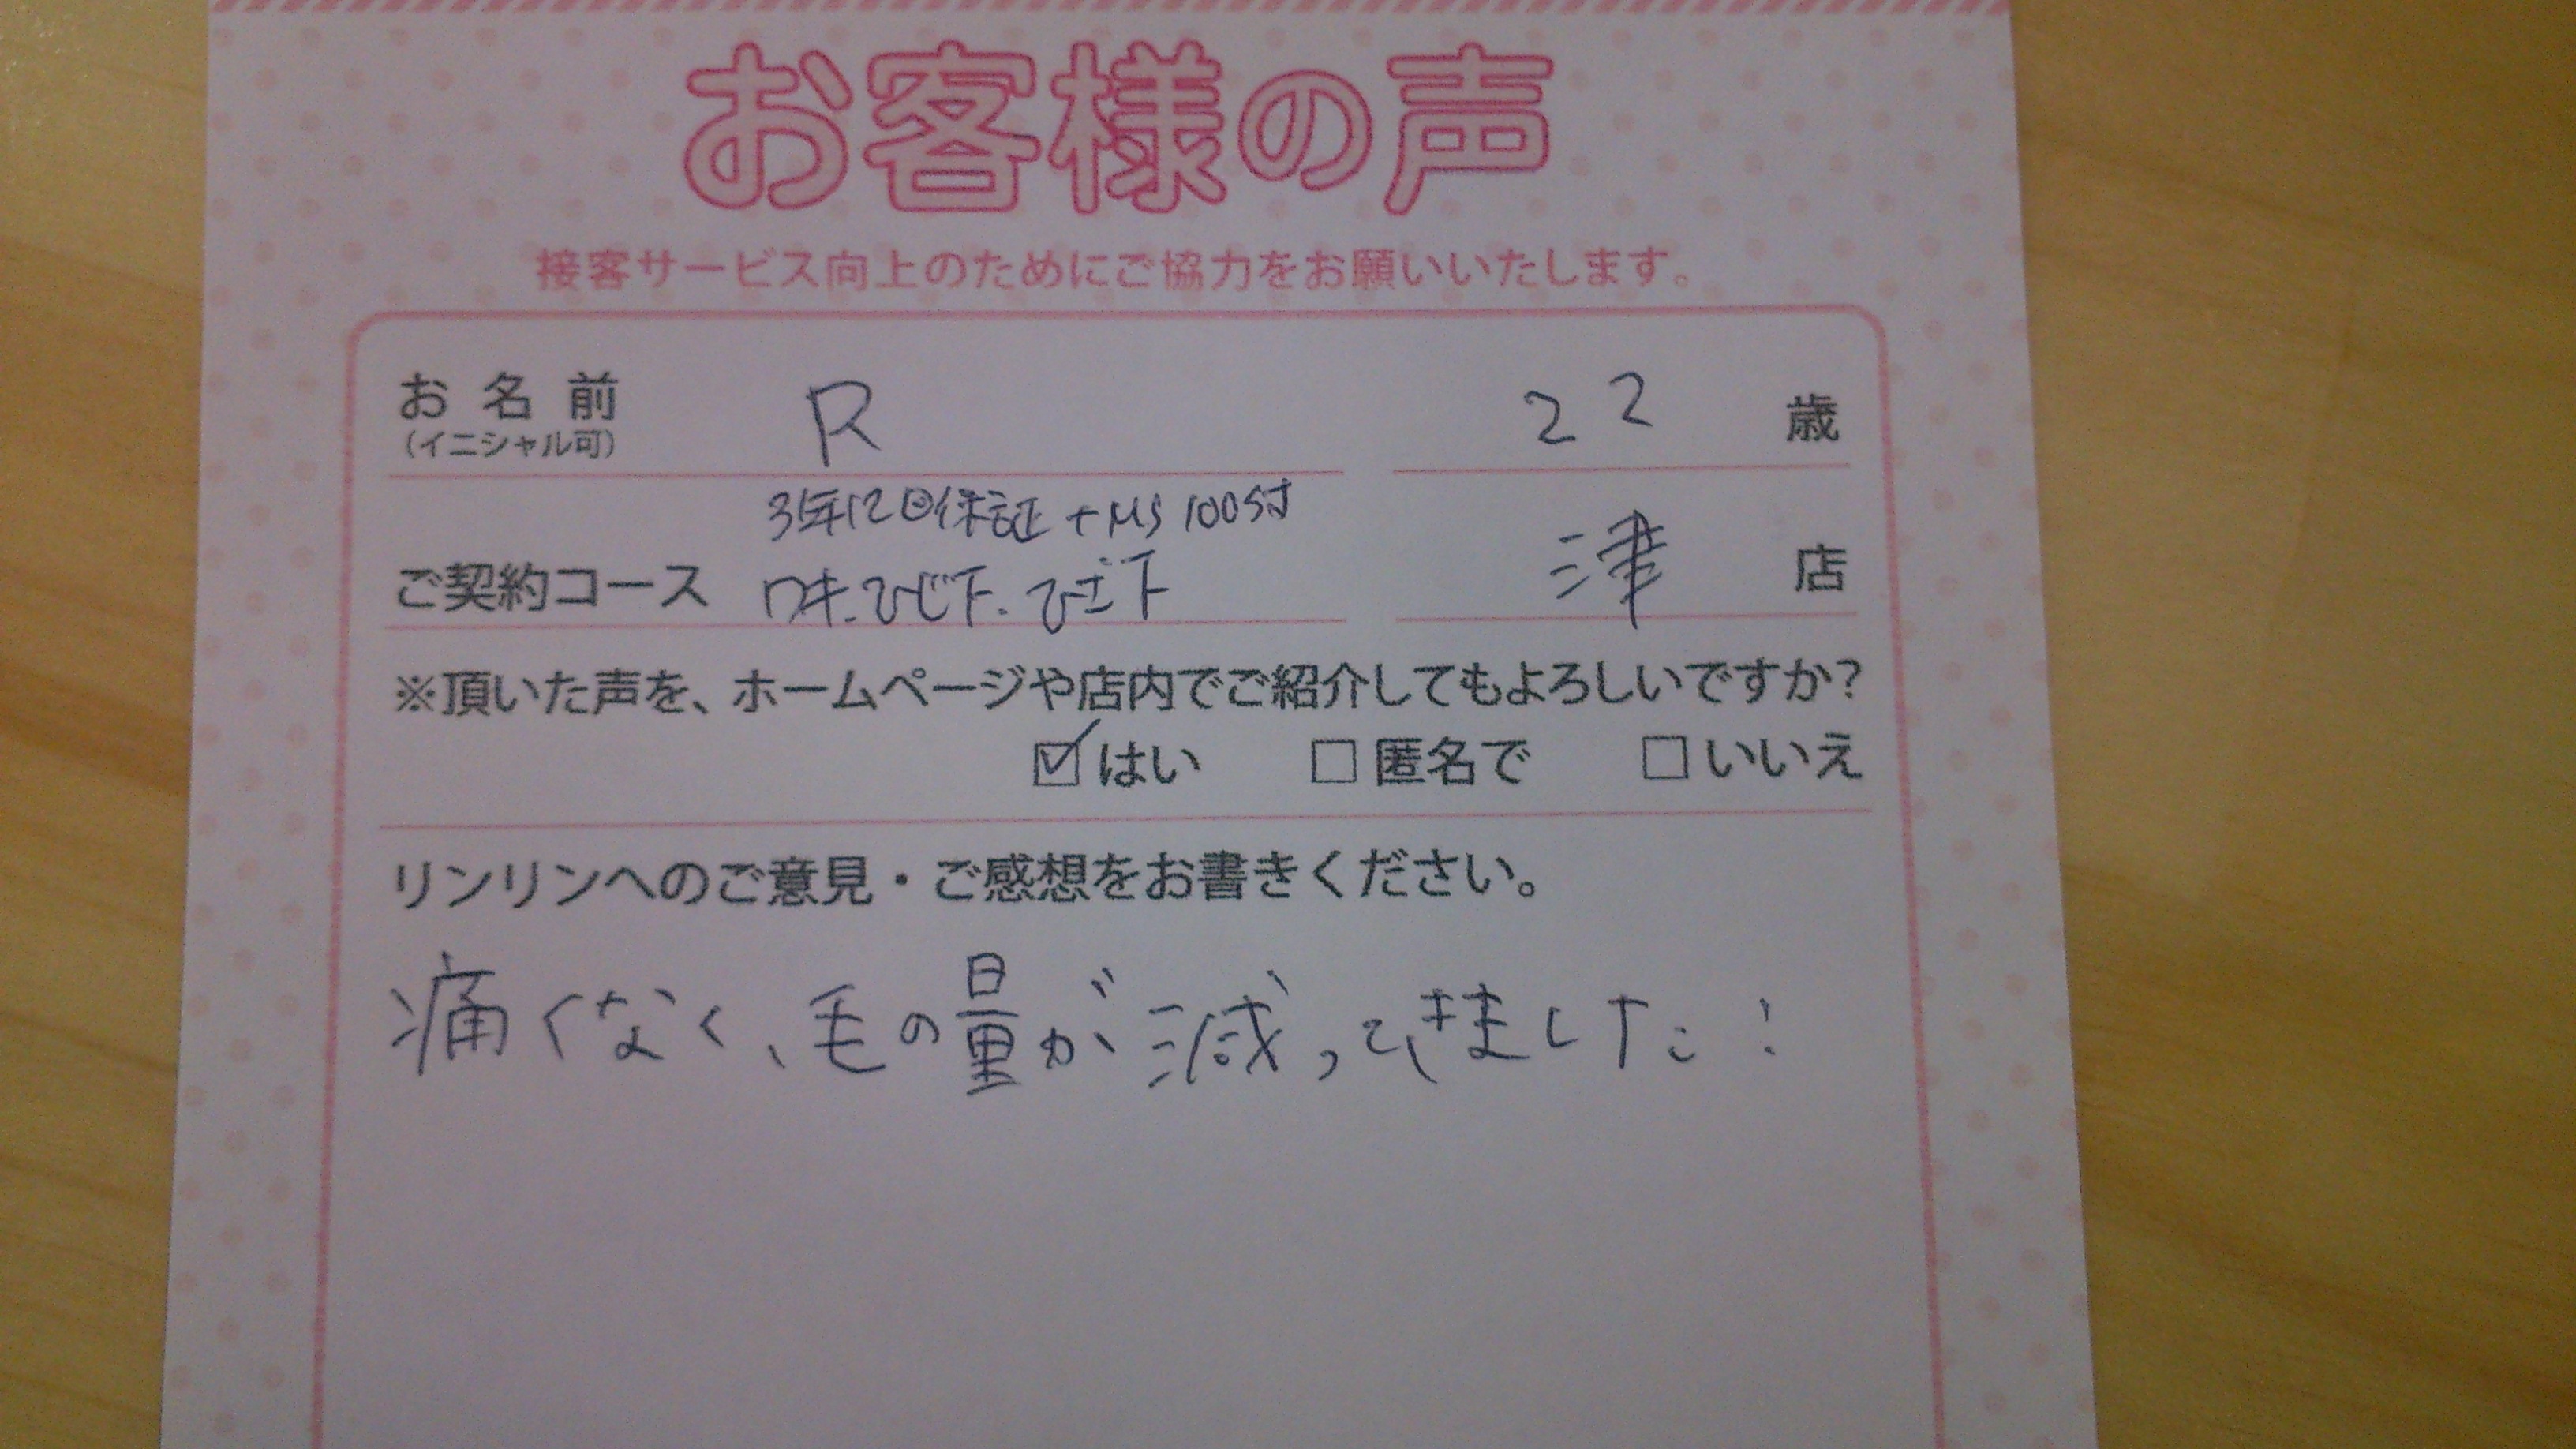 お客様の声
接客サービス向上のためにご協力をお願いいたします。
お名前 R 22 歳
(イニシャル可)
3年12回保証+MS100S付
ご契約コース ワキ.ひじ下.ひざ下 津 店
※頂いた声を、ホームページや店内でご紹介してもよろしいですか?
☑はい □匿名で □いいえ
リンリンへのご意見・ご感想をお書きください。
痛くなく、毛の量が減ってきました!